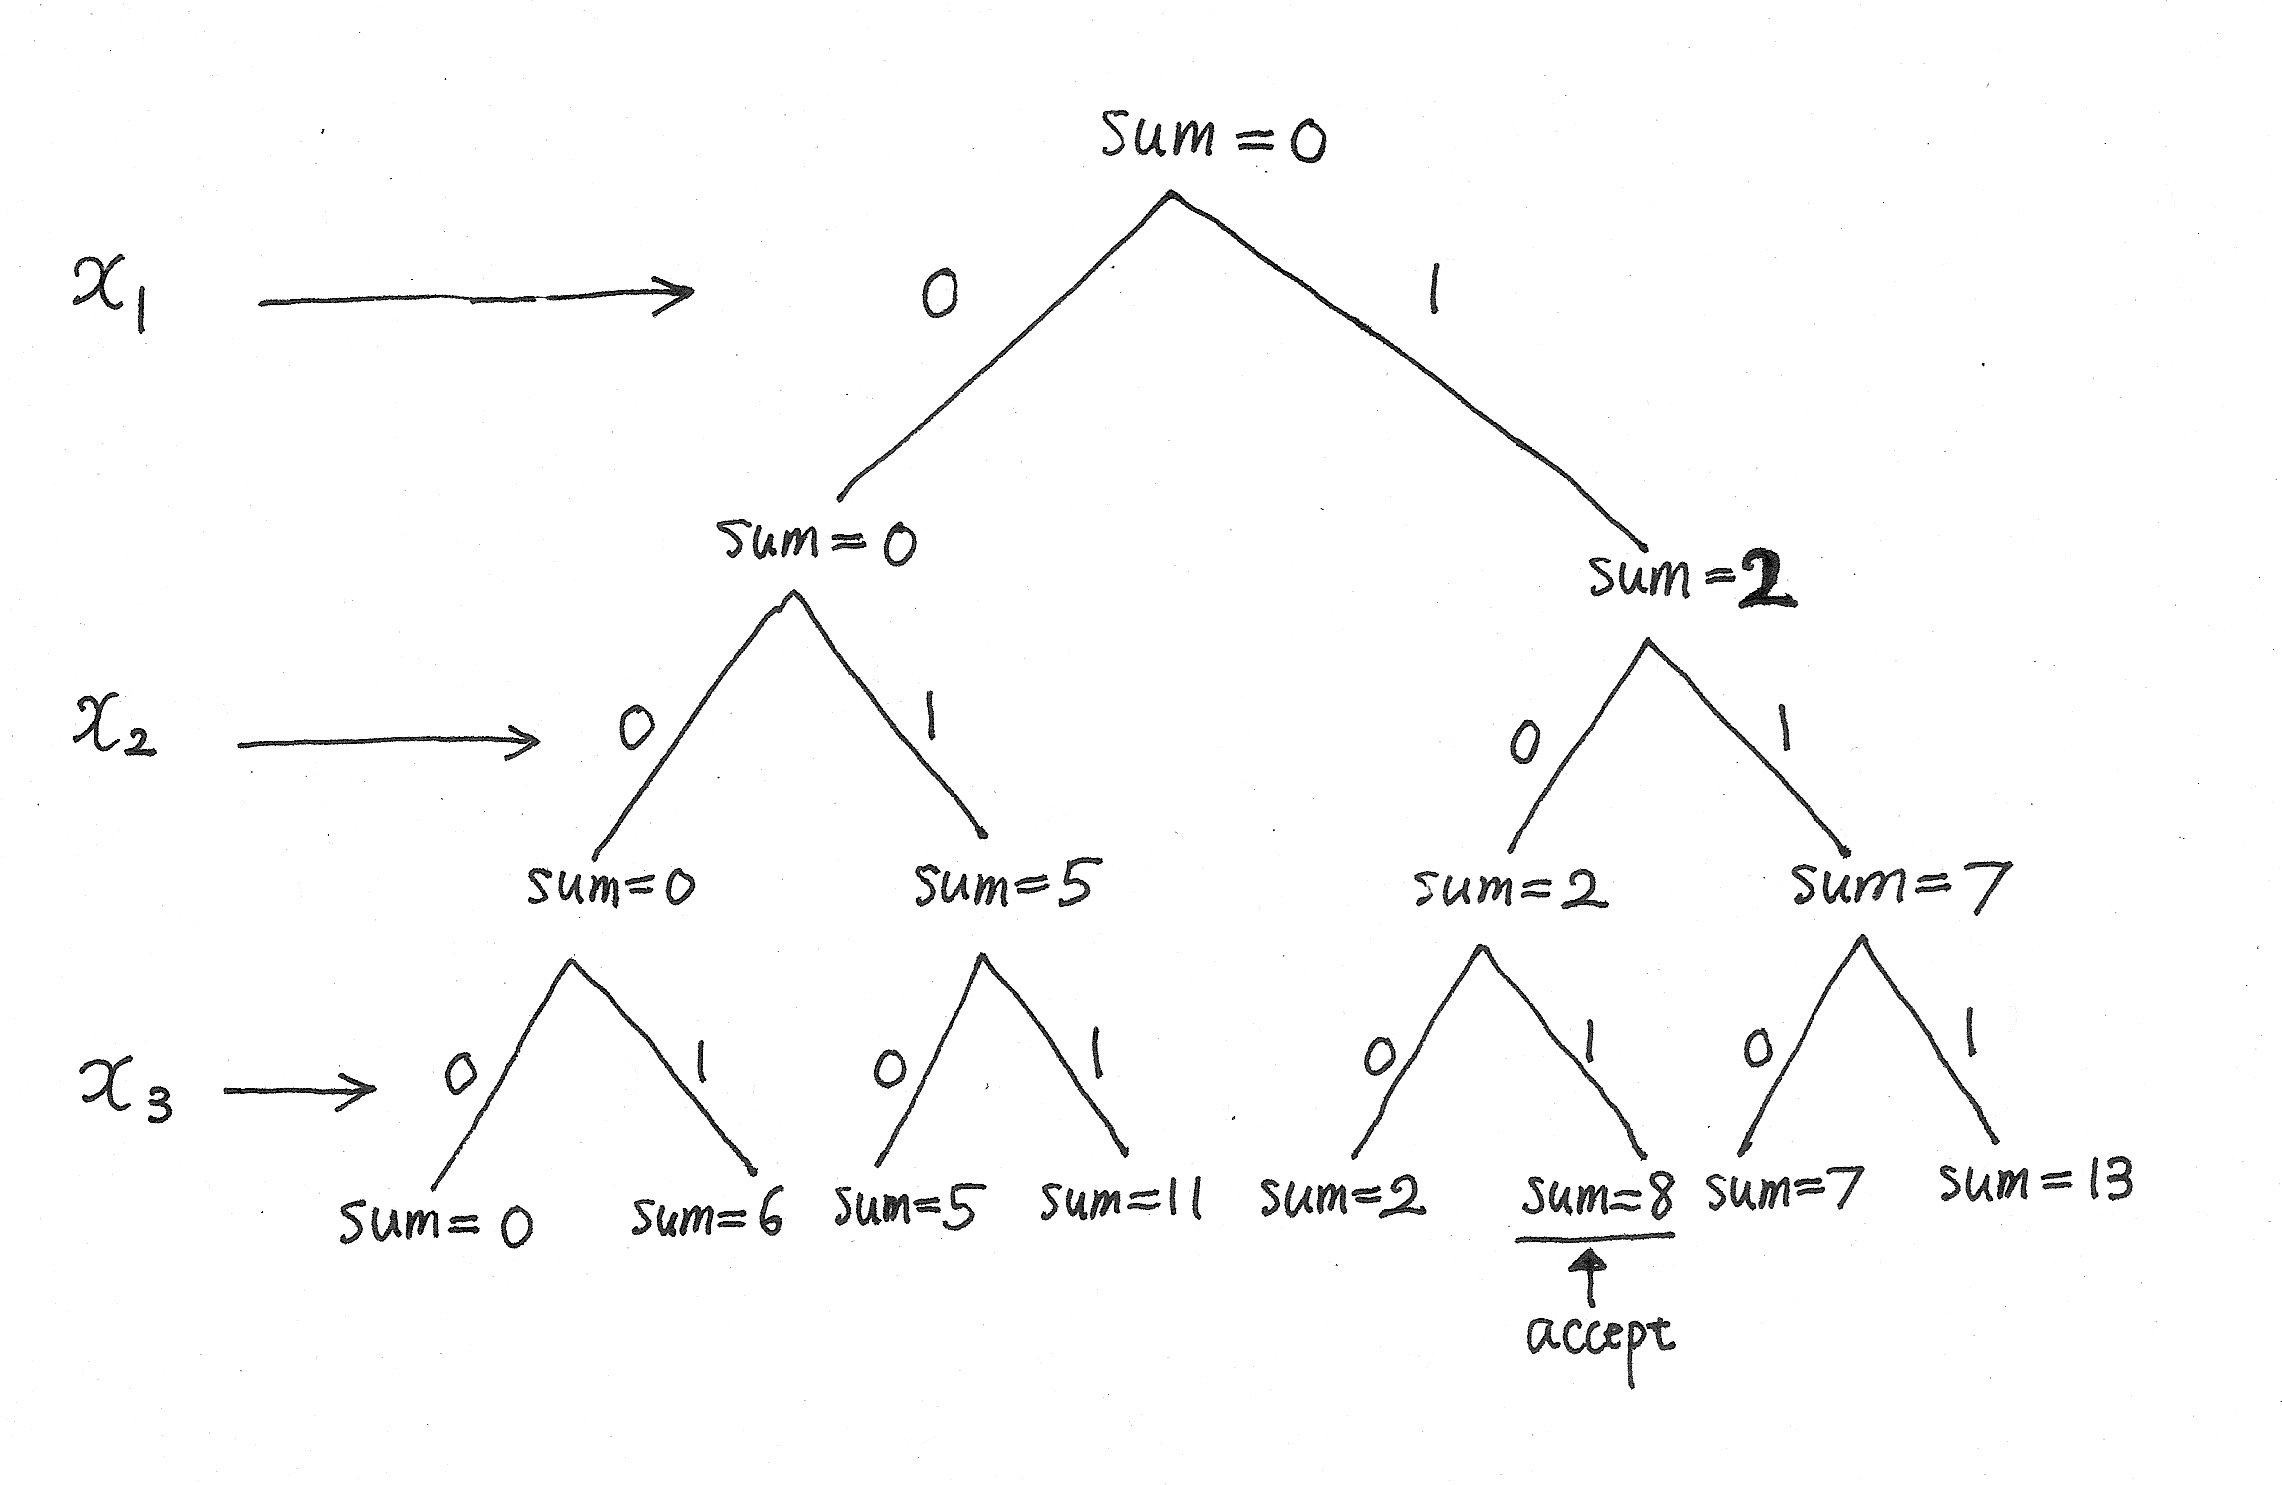 sum=0
x1 0 1
sum=0
sum=2
x2 0 1 0 1
sum=0 sum=5 sum=2 sum=7
x3 0 1 0 1 0 1 0 1
sum=0 sum=6 sum=5 sum=11 sum=2 sum=8 sum=7 sum=13
accept